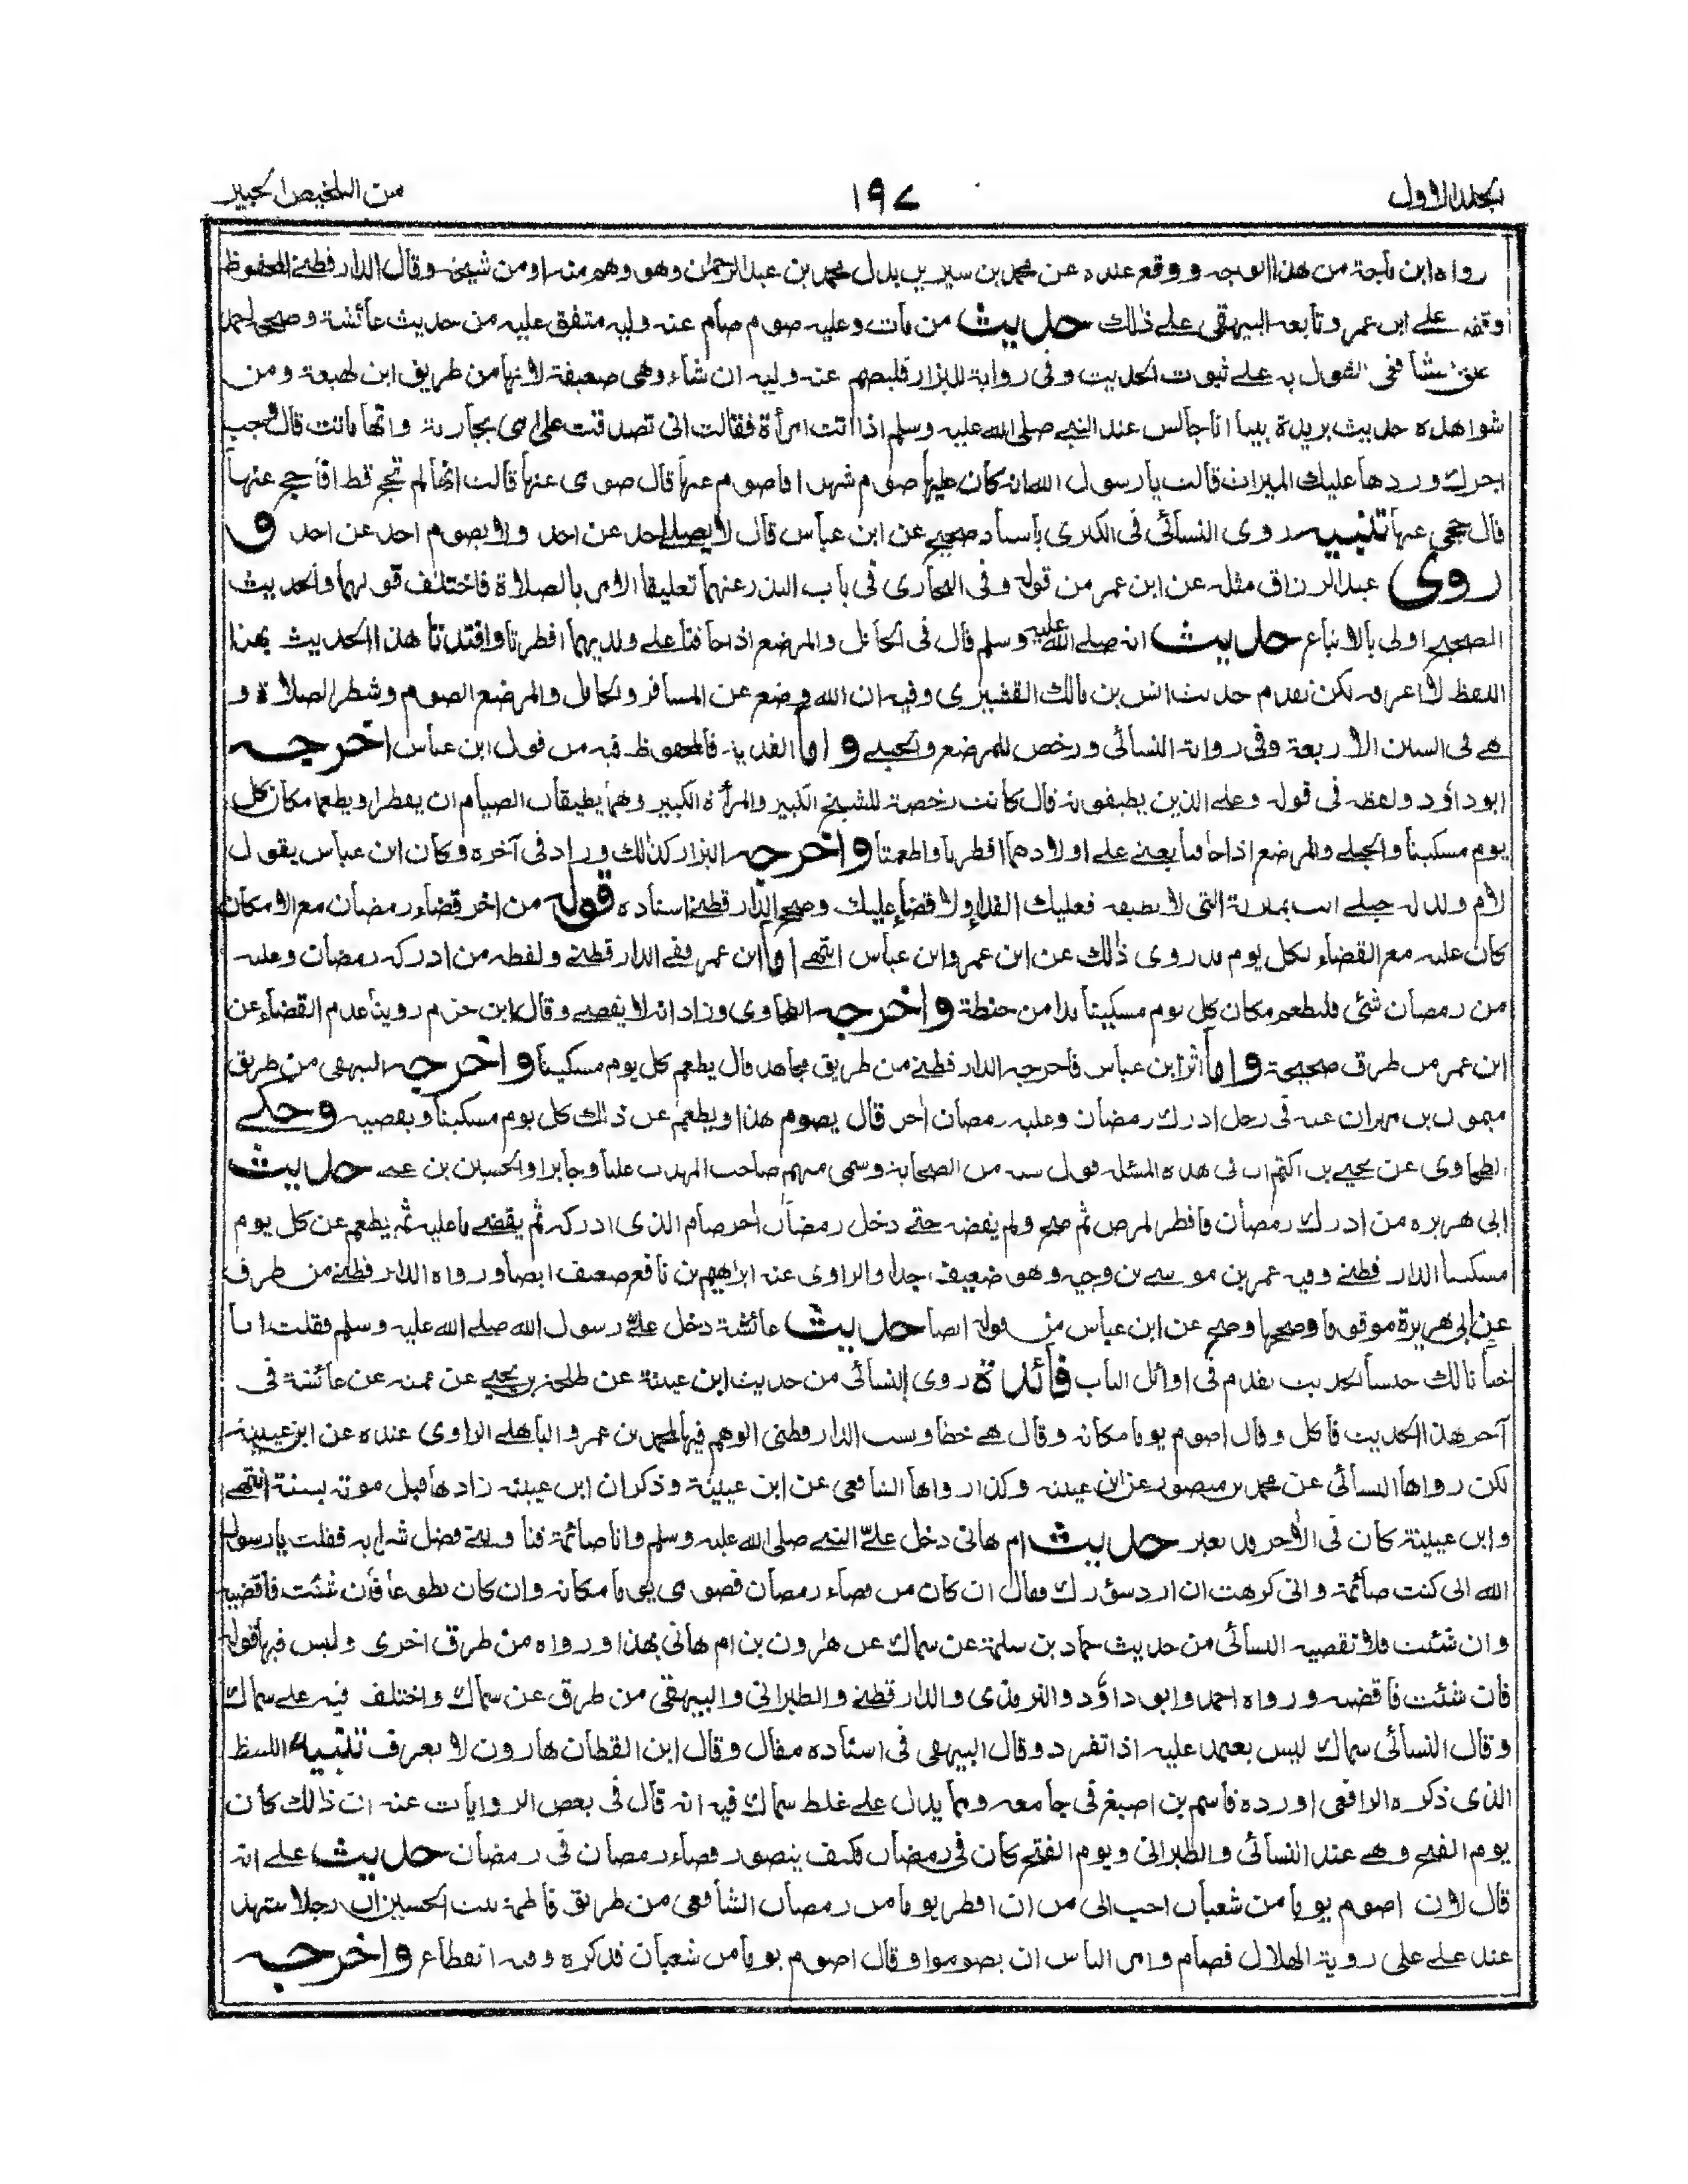 المجلد الاول ١٩٧ من التلخيص الحبير
رواه ابن ماجة من هذا الوجه ووقع عنده عن محمد بن سيرين بدل محمد بن عبد الرحمن وهو وهم منه او من شيخه وقال الدارقطني المحفوظ
وقفه على ابن عمر وتابعه البيهقي على ذلك حديث من مات وعليه صوم صام عنه وليه متفق عليه من حديث عائشة وصححه احمد
علق الشافعي القول به على ثبوت الحديث وفى رواية للبزار فليصم عنه وليه ان شاء وهى ضعيفة لانها من طريق ابن لهيعة ومن
شواهده حديث بريدة بينا انا جالس عند النبي صلى الله عليه وسلم اذ اتت امرأة فقالت انى تصدقت على امى بجارية وانها ماتت قال وجب
اجرك وردها عليك الميراث قالت يا رسول الله انه كان عليها صوم شهر ا فاصوم عنها قال صومى عنها قالت انها لم تحج قط افاحج عنها
قال حجى عنها تنبيه روى النسائى فى الكبرى باسناد صحيح عن ابن عباس قال لا يصلى احد عن احد ولا يصوم احد عن احد و
روى عبد الرزاق مثله عن ابن عمر من قوله وفى البخارى فى باب النذر عنهما تعليقا الامر بالصلاة فاختلف قولهما والحديث
الصحيح اولى بالاتباع حديث انه صلى الله عليه وسلم قال فى الحامل والمرضع اذا خافتا على ولديهما افطرتا وافتدتا هذا الحديث بهذا
اللفظ لا اعرفه لكن تقدم حديث انس بن مالك القشيرى وفيه ان الله وضع عن المسافر والحامل والمرضع الصوم وشطر الصلاة و
هى فى السنن الاربعة وفى رواية النسائى ورخص للمرضع والحبلى واما الفدية فالمحفوظ فيه من قول ابن عباس اخرجه
ابو داؤد ولفظه فى قوله وعلى الذين يطيقونه قال كانت رخصة للشيخ الكبير والمرأة الكبير وهما يطيقان الصيام ان يفطرا ويطعما مكان كل
يوم مسكينا والحبلى والمرضع اذا خافتا يعنى على اولادهما افطرتا واطعمتا واخرجه البزار كذلك وزاد فى آخره وكان ابن عباس يقول
لام ولد له حبلى انت بمنزلة التى لا تطيقه فعليك الفداء ولا قضاء عليك وصحح الدارقطنى اسناده قوله من اخر قضاء رمضان مع الامكان
كان عليه مع القضاء لكل يوم مد روى ذلك عن ابن عمر وابن عباس انتهى اما ابن عمر ففى الدارقطنى ولفظه من ادركه رمضان وعليه
من رمضان شئ فليطعم مكان كل يوم مسكينا مدا من حنطة واخرجه الطحاوى وزاد انه لا يقضى وقال ابن حزم روينا عدم القضاء عن
ابن عمر من طرق صحيحة واما اثر ابن عباس فاخرجه الدارقطنى من طريق مجاهد قال يطعم كل يوم مسكينا واخرجه البيهقى من طريق
ميمون بن مهران عنه فى رجل ادرك رمضان وعليه رمضان اخر قال يصوم هذا ويطعم عن ذلك كل يوم مسكينا ويقضيه وحكى
الطحاوى عن يحيى بن اكثم ان فى هذه المسئلة قول ستة من الصحابة وسمى منهم صاحب المهذب عليا وجابرا والحسين بن على حديث
ابى هريرة من ادرك رمضان فافطر لمرض ثم صح ولم يقضه حتى دخل رمضان اخر صام الذى ادركه ثم يقضى ما عليه ثم يطعم عن كل يوم
مسكينا الدارقطنى وفيه عمر بن موسى بن وجيه وهو ضعيف جدا والراوى عنه ابراهيم بن نافع ضعيف ايضا ورواه الدارقطنى من طرق
عن ابى هريرة موقوفا وصححها وصح عن ابن عباس من قوله ايضا حديث عائشة دخل على رسول الله صلى الله عليه وسلم فقلت انا
خبأنا لك حيسا الحديث تقدم فى اوائل الباب فائدة روى النسائى من حديث ابن عيينة عن طلحة بن يحيى عن عمته عن عائشة فى
آخر هذا الحديث فاكل وقال اصوم يوما مكانه وقال هى خطأ ونسب الدارقطنى الوهم فيها لمحمد بن عمرو الباهلى الراوى عنده عن ابن عيينة
لكن رواها النسائى عن محمد بن منصور عن ابن عيينة وكذا رواها الشافعى عن ابن عيينة وذكر ان ابن عيينة زادها قبل موته بسنة انتهى
وابن عيينة كان فى الآخر قد تغير حديث ام هانى دخل علىّ النبى صلى الله عليه وسلم وانا صائمة فناولنى فضل شرابه فقلت يا رسول
الله انى كنت صائمة وانى كرهت ان ارد سؤرك فقال ان كان من قضاء رمضان فصومى يوما مكانه وان كان تطوعا فان شئت فاقضيه
وان شئت فلا تقضيه النسائى من حديث حماد بن سلمة عن سماك عن هارون بن ام هانى بهذا ورواه من طرق اخرى وليس فيها قوله
فان شئت فاقضيه ورواه احمد وابو داؤد والترمذى والدارقطنى والطبرانى والبيهقى من طرق عن سماك واختلف فيه على سماك
وقال النسائى سماك ليس يعتمد عليه اذا تفرد وقال البيهقى فى اسناده مقال وقال ابن القطان هارون لا يعرف تنبيه اللفظ
الذى ذكره الرافعى اورده قاسم بن اصبغ فى جامعه ومما يدل على غلط سماك فيه انه قال فى بعض الروايات عنه ان ذلك كان
يوم الفتح وهى عند النسائى والطبرانى ويوم الفتح كان فى رمضان فكيف يتصور قضاء رمضان فى رمضان حديث على انه
قال لان اصوم يوما من شعبان احب الى من ان افطر يوما من رمضان الشافعى من طريق فاطمة بنت الحسين ان رجلا شهد
عند على على روية الهلال فصام وامر الناس ان يصوموا وقال اصوم يوما من شعبان فذكره وفيه انقطاع واخرجه